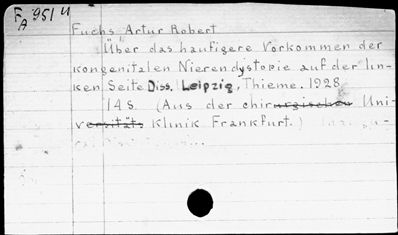 F 951 U
A
Fuchs Artur Robert
Über das haufigere Vorkommen der
kongenitalen Nierendystopie auf der lin-
ken Seite Diss. Leipzig, Thieme. 1928
14 S. (Aus der chirurgischen Uni-
versitäts Klinik Frankfurt.)